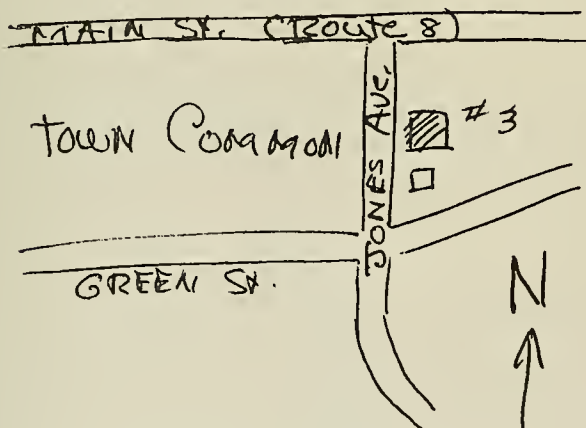 MAIN St. (Route 8)
Town Common
JONES Ave.
# 3
GREEN St.
N